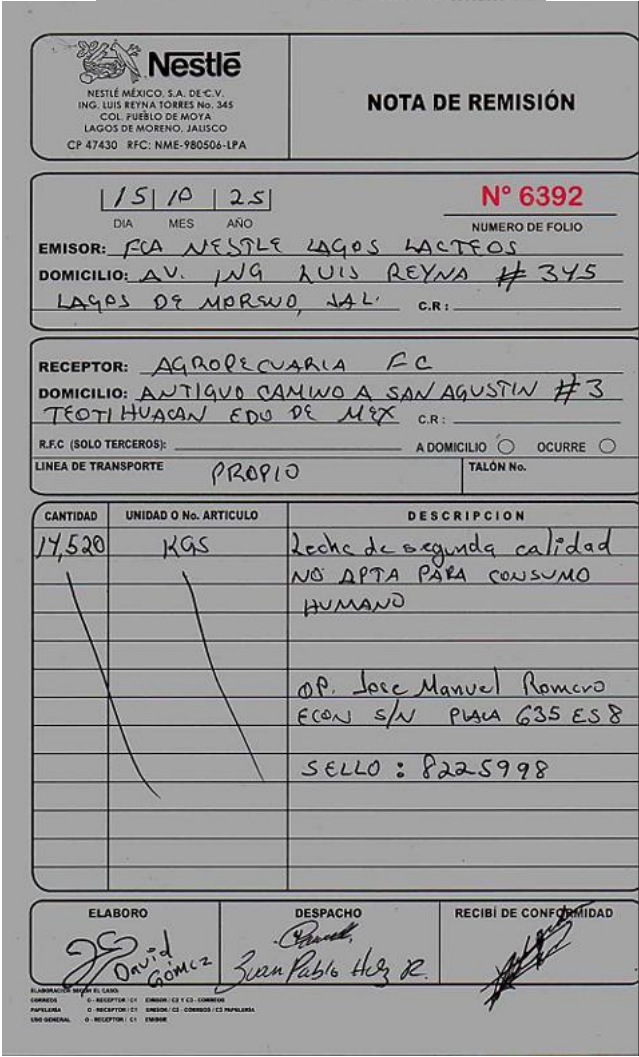 Nestlé
NESTLÉ MÉXICO. S.A. DE C.V.
ING. LUIS REYNA TORRES No. 345
COL. PUEBLO DE MOYA
LAGOS DE MORENO, JALISCO
CP 47430 RFC: NME-980506-LPA
NOTA DE REMISIÓN
15 | 10 | 25
DIA MES AÑO
N° 6392
NUMERO DE FOLIO
EMISOR: FCA NESTLE LAGOS LACTEOS
DOMICILIO: AV. ING LUIS REYNA # 345
LAGOS DE MORENO, JAL. C.R:
RECEPTOR: AGROPECUARIA FC
DOMICILIO: ANTIGUO CAMINO A SAN AGUSTIN #3
TEOTIHUACAN EDO DE MEX C.R:
R.F.C (SOLO TERCEROS): A DOMICILIO OCURRE
LINEA DE TRANSPORTE PROPIO TALÓN No.
CANTIDAD UNIDAD O No. ARTICULO DESCRIPCION
14,520 KGS Leche de segunda calidad
NO APTA PARA CONSUMO
HUMANO
OP. Jose Manuel Romero
ECON S/N PLACA 635 ES 8
SELLO: 8225998
ELABORO DESPACHO RECIBÍ DE CONFORMIDAD
David Gómez
Juan Pablo Hdz R.
ELABORACION SEGÚN EL CASO:
CORREOS O - RECEPTOR / C1 EMISOR / C2 Y C3 - CORREOS
PAPELERIA O - RECEPTOR / C1 EMISOR / C2 - CORREOS / C3 PAPELERIA
USO GENERAL O - RECEPTOR / C1 EMISOR